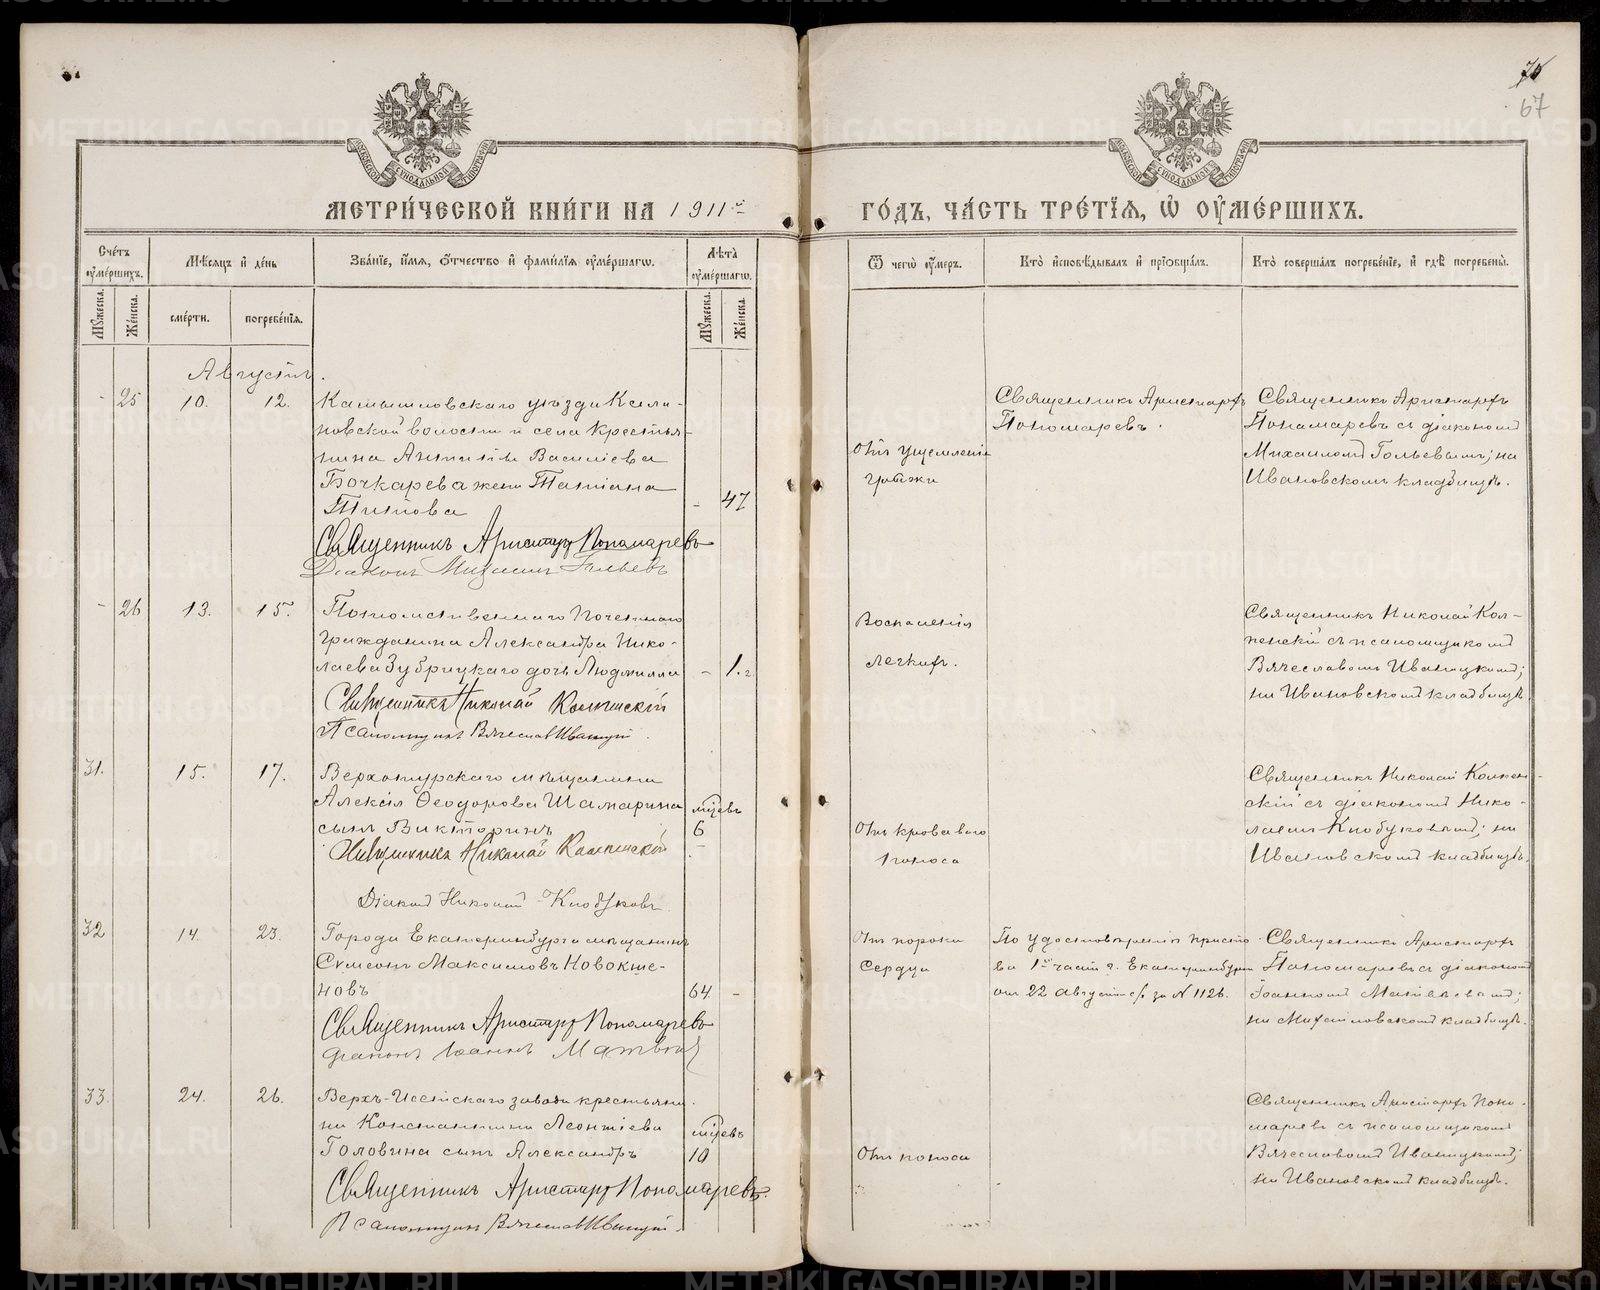 70
67
МЕТРИ́ЧЕСКОЙ КНИ́ГИ НА 1911й
ГО́ДЪ, ЧА́СТЬ ТРЕ́ТІЯ, Ѽ ОУМЕ́РШИХЪ.
Сче́тъ оуме́ршихъ.
Мꙋжеска.
Же́нска.
Мѣсяцъ и де́нь
сме́рти.
погребе́нія.
Зва́ніе, и́мя, о́тчество и фами́лія оуме́ршагѡ.
Лѣта оуме́ршагѡ.
Мꙋжеска.
Же́нска.
Ѿ чегѡ̀ оу́меръ.
Кто̀ исповѣ́дывалъ и пріѻбща́лъ.
Кто̀ соверша́лъ погребе́ніе, и гдѣ̀ погребены̀.
Августъ.
- 25 10. 12.
Камышловскаго уѣзда
новской волости и села крестья-
нина Василіева
Бочкарева жена Татіана
Титова
- 47
Священникъ Аристархъ Пономаревъ
Діаконъ Михаилъ
Отъ ущемленія
грыжи
Священникъ Аристархъ
Пономаревъ.
Священникъ Аристархъ
Пономаревъ съ діакономъ
Михаиломъ на
Ивановскомъ кладбищѣ.
- 26 13. 15.
Потомственнаго Почетнаго
гражданина Александра Нико-
лаева Зубрицкаго дочь Людмилла
- 1. г.
Священникъ Николай
Псаломщикъ Вячеславъ Иваницкій.
Воспаленія
легкихъ.
Священникъ Николай
съ псаломщикомъ
Вячеславомъ Иваницкимъ;
на Ивановскомъ кладбищѣ.
31. 15. 17.
Верхотурскаго мѣщанина
Алексія Ѳеодорова Шамарина
сынъ Викторинъ
мѣсцевъ
6
-
Священникъ Николай
Діаконъ Николай
Отъ кроваваго
поноса
Священникъ Николай
съ діакономъ Нико-
лаемъ на
Ивановскомъ кладбищѣ.
32 14. 23.
Города Екатеринбурга мѣщанинъ
Сѵмеонъ Максимовъ Новокше-
новъ
64. -
Священникъ Аристархъ Пономаревъ
Діаконъ Іоаннъ
Отъ порока
сердца
По удостовѣренію приста-
ва 1й части г. Екатеринбурга
отъ 22 августа с/г за № 1126.
Священникъ Аристархъ
Пономаревъ съ діакономъ
Іоанномъ
на Михайловскомъ кладбищѣ.
33. 24. 26.
Верхъ-Исетскаго завода крестьяни-
на Константина Леонтіева
Головина сынъ Александръ
мѣсцевъ
10
Священникъ Аристархъ Пономаревъ.
Псаломщикъ Вячеславъ Иваницкій.
Отъ поноса
Священникъ Аристархъ Поно-
маревъ съ псаломщикомъ
Вячеславомъ Иваницкимъ;
на Ивановскомъ кладбищѣ.
METRIKI.GASO-URAL.RU